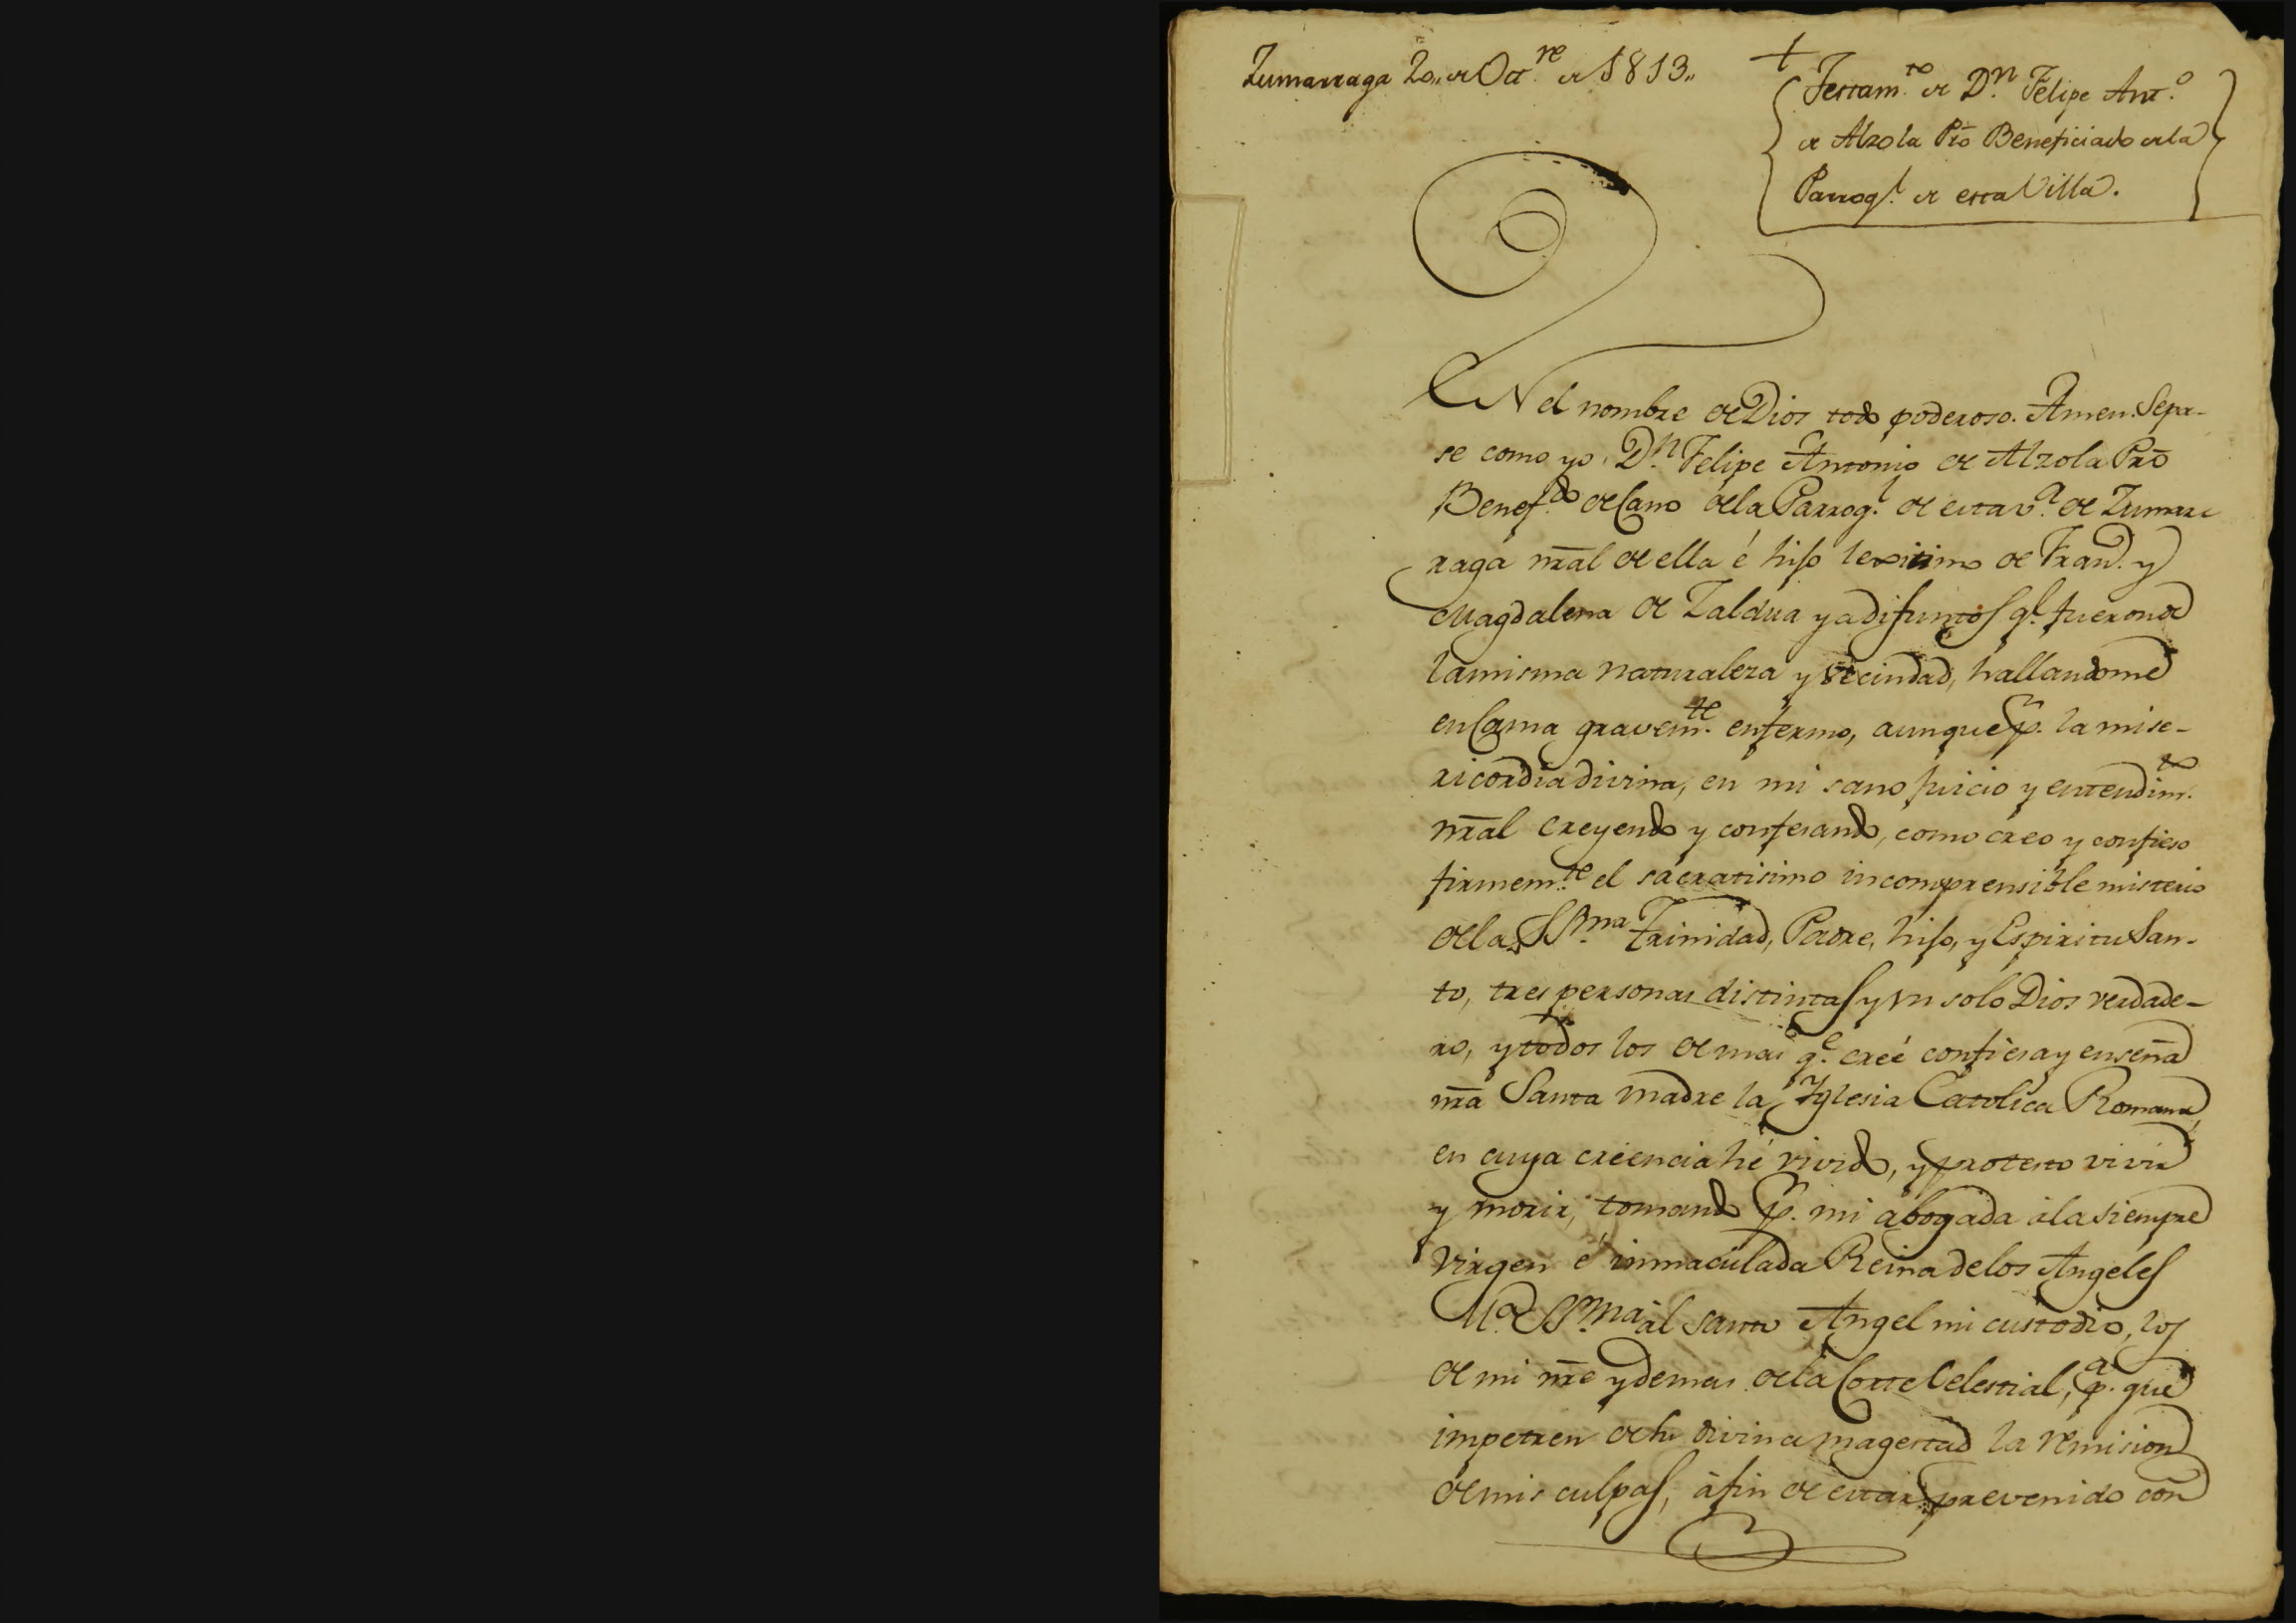 Zumarraga 20,, de Oct.re de 1813,,
+
Testam.to de D.n Felipe Ant.o
de Alzola Pr̄o Beneficiado de la
Parroq.l de esta Villa.
EN el nombre de Dios todo poderoso. Amen. Sepa-
se como yo, D.n Felipe Antonio de Alzola Pr̄o
Benef.do decano de la Parroq.l de esta v.a de Zumar-
raga nr̄al de ella é hijo lexitimo de Fran.co y
Magdalena de Zaldua ya difuntos q.e fueron de
la misma naturaleza y vecindad, hallandome
en cama gravem.te enfermo, aunque p.r la mise-
ricordia divina, en mi sano juicio y entendim.to
nr̄al creyendo y confesando, como creo y confieso
firmem.te el sacratisimo incomprensible misterio
de la SS.ma Trinidad, Padre, hijo, y Espiritu San-
to, tres personas distintas y vn solo Dios verdade-
ro, y todos los demas q.e creé confiesa y enseña
nr̄a Santa madre la Yglesia Catolica Romana,
en cuya creencia hé vivido, y protesto vivir
y morir, tomando p.r mi abogada á la siempre
virgen é inmaculada Reina de los Angeles
M.a SS.ma al santo Angel mi custodio, los
de mi nr̄e y demas de la Corte Celestial, p.a que
impetren de su divina magestad la remision
de mis culpas, á fin de estar prevenido con